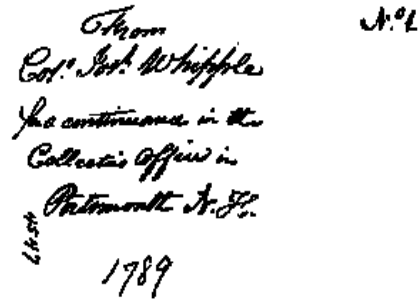 From
Col.º Jos. Whipple
for continuance in the
Collector's Office in
Portsmouth N. H.
1789